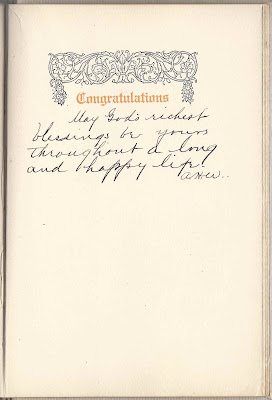 Congratulations
May God's richest
blessings be yours
throughout a long
and happy life.